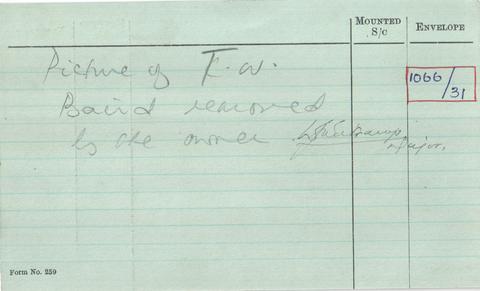 MOUNTED S/C
ENVELOPE
1066/31
Picture of F. W.
Baird removed
by the owner
Major.
Form No. 259